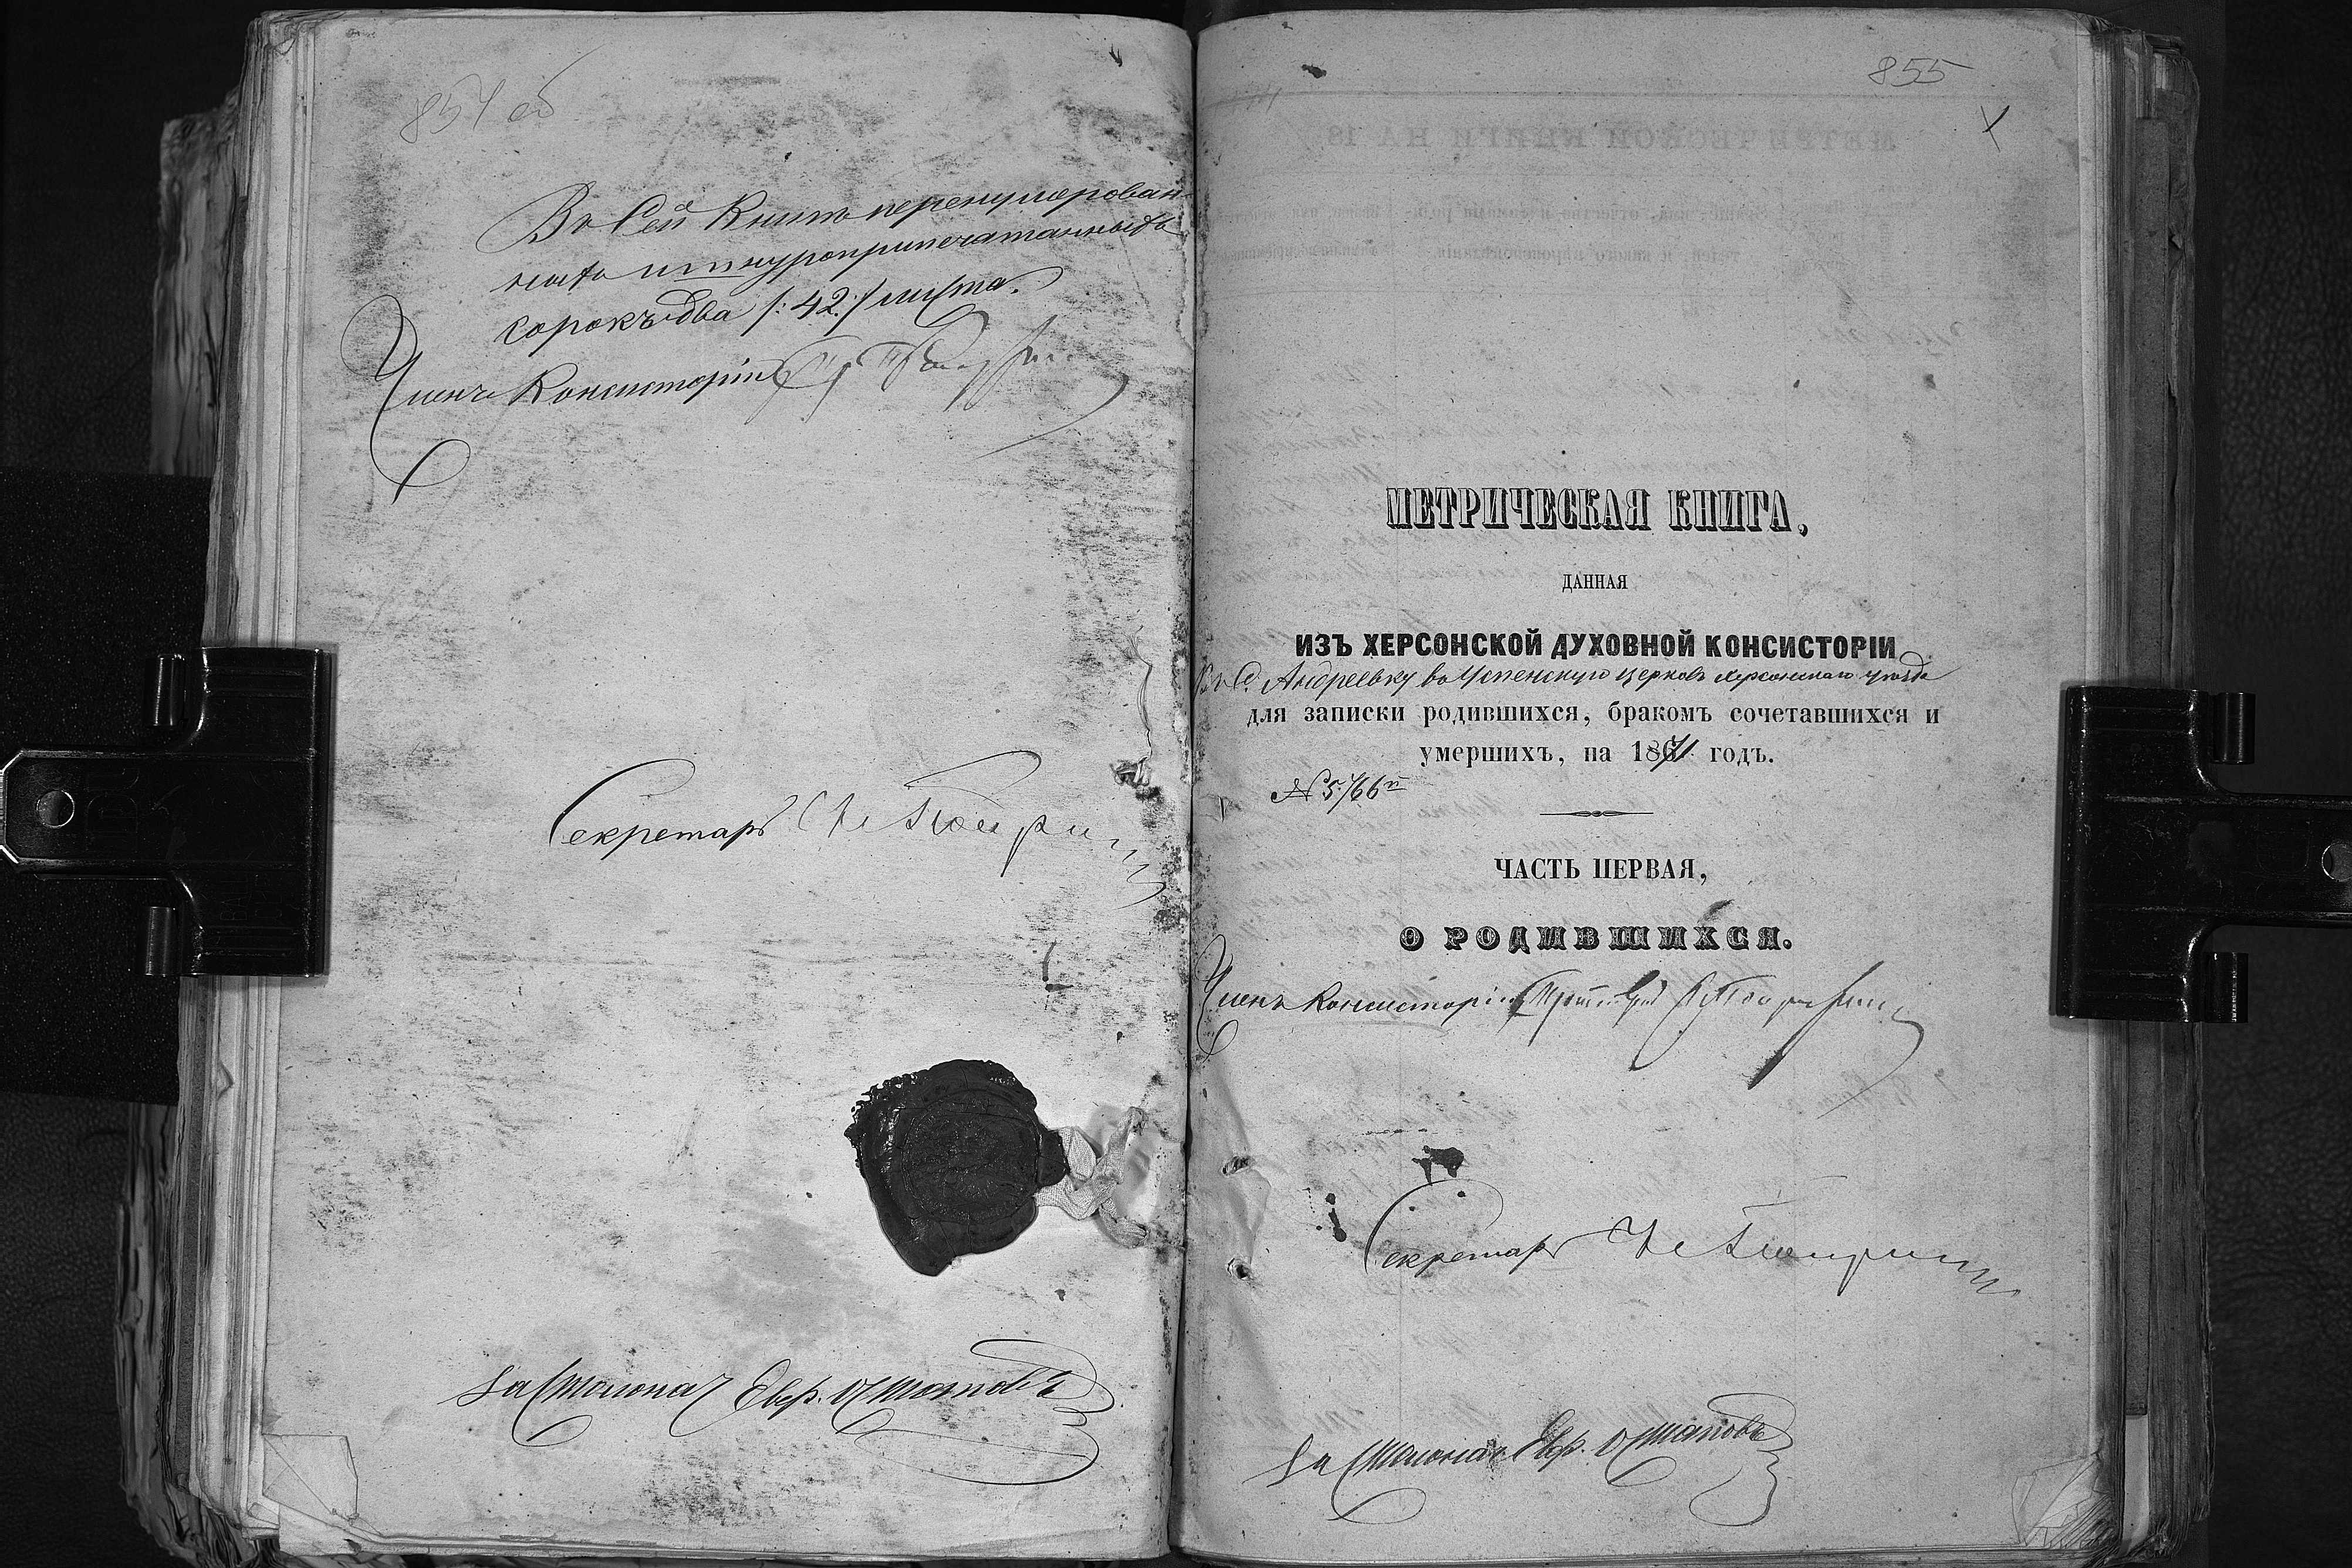 854 об
Въ Сей Книгѣ перенумерован-
ныхъ и шнуроприпечатанныхъ
сорокъ два /: 42 :/ листа.
Членъ Консисторіи
Секретарь
За Столонач Евр. Остаповъ
855
МЕТРИЧЕСКАЯ КНИГА,
ДАННАЯ
ИЗЪ ХЕРСОНСКОЙ ДУХОВНОЙ КОНСИСТОРІИ
Въ С. Андреевку въ Успенскую церковь Херсонскаго уѣзда
для записки родившихся, бракомъ сочетавшихся и
умершихъ, на 1871 годъ.
ЧАСТЬ ПЕРВАЯ,
О РОДИВШИХСЯ.
Членъ Консисторіи
Секретарь
За Столонач Евр. Остаповъ